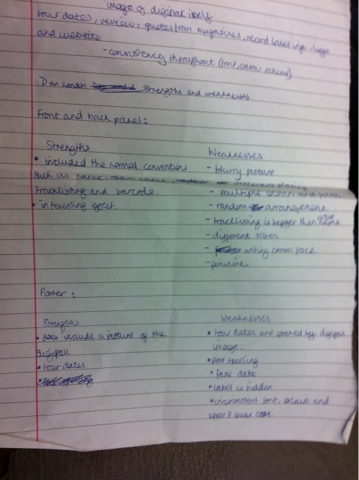 image of digipak itself
tour dates, reviews, quotes from magazines, record label info - logo
and website
- consistency throughout (font, colour scheme)
strengths and weaknesses
Front and back panel:
Strengths
• included the normal conventions
such as name
tracklisting and barcode.
• interesting effect.
Weaknesses
- blurry picture
- multiple
- random arrangement
- tracklisting is bigger than name
- different sizes
- writing across face
- feminine
Poster:
Strengths
• does include a picture of the
digipak
• tour dates
Weaknesses
• tour dates are covered by digipak
image.
• poor spelling
• fake date
• label is hidden
• inconsistent font, colour and
upper & lower case.